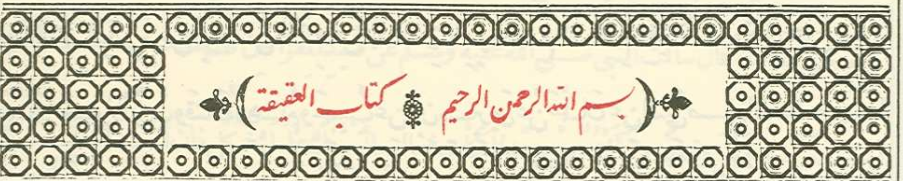 بسم الله الرحمن الرحيم ﴿ كتاب العقيقة ﴾